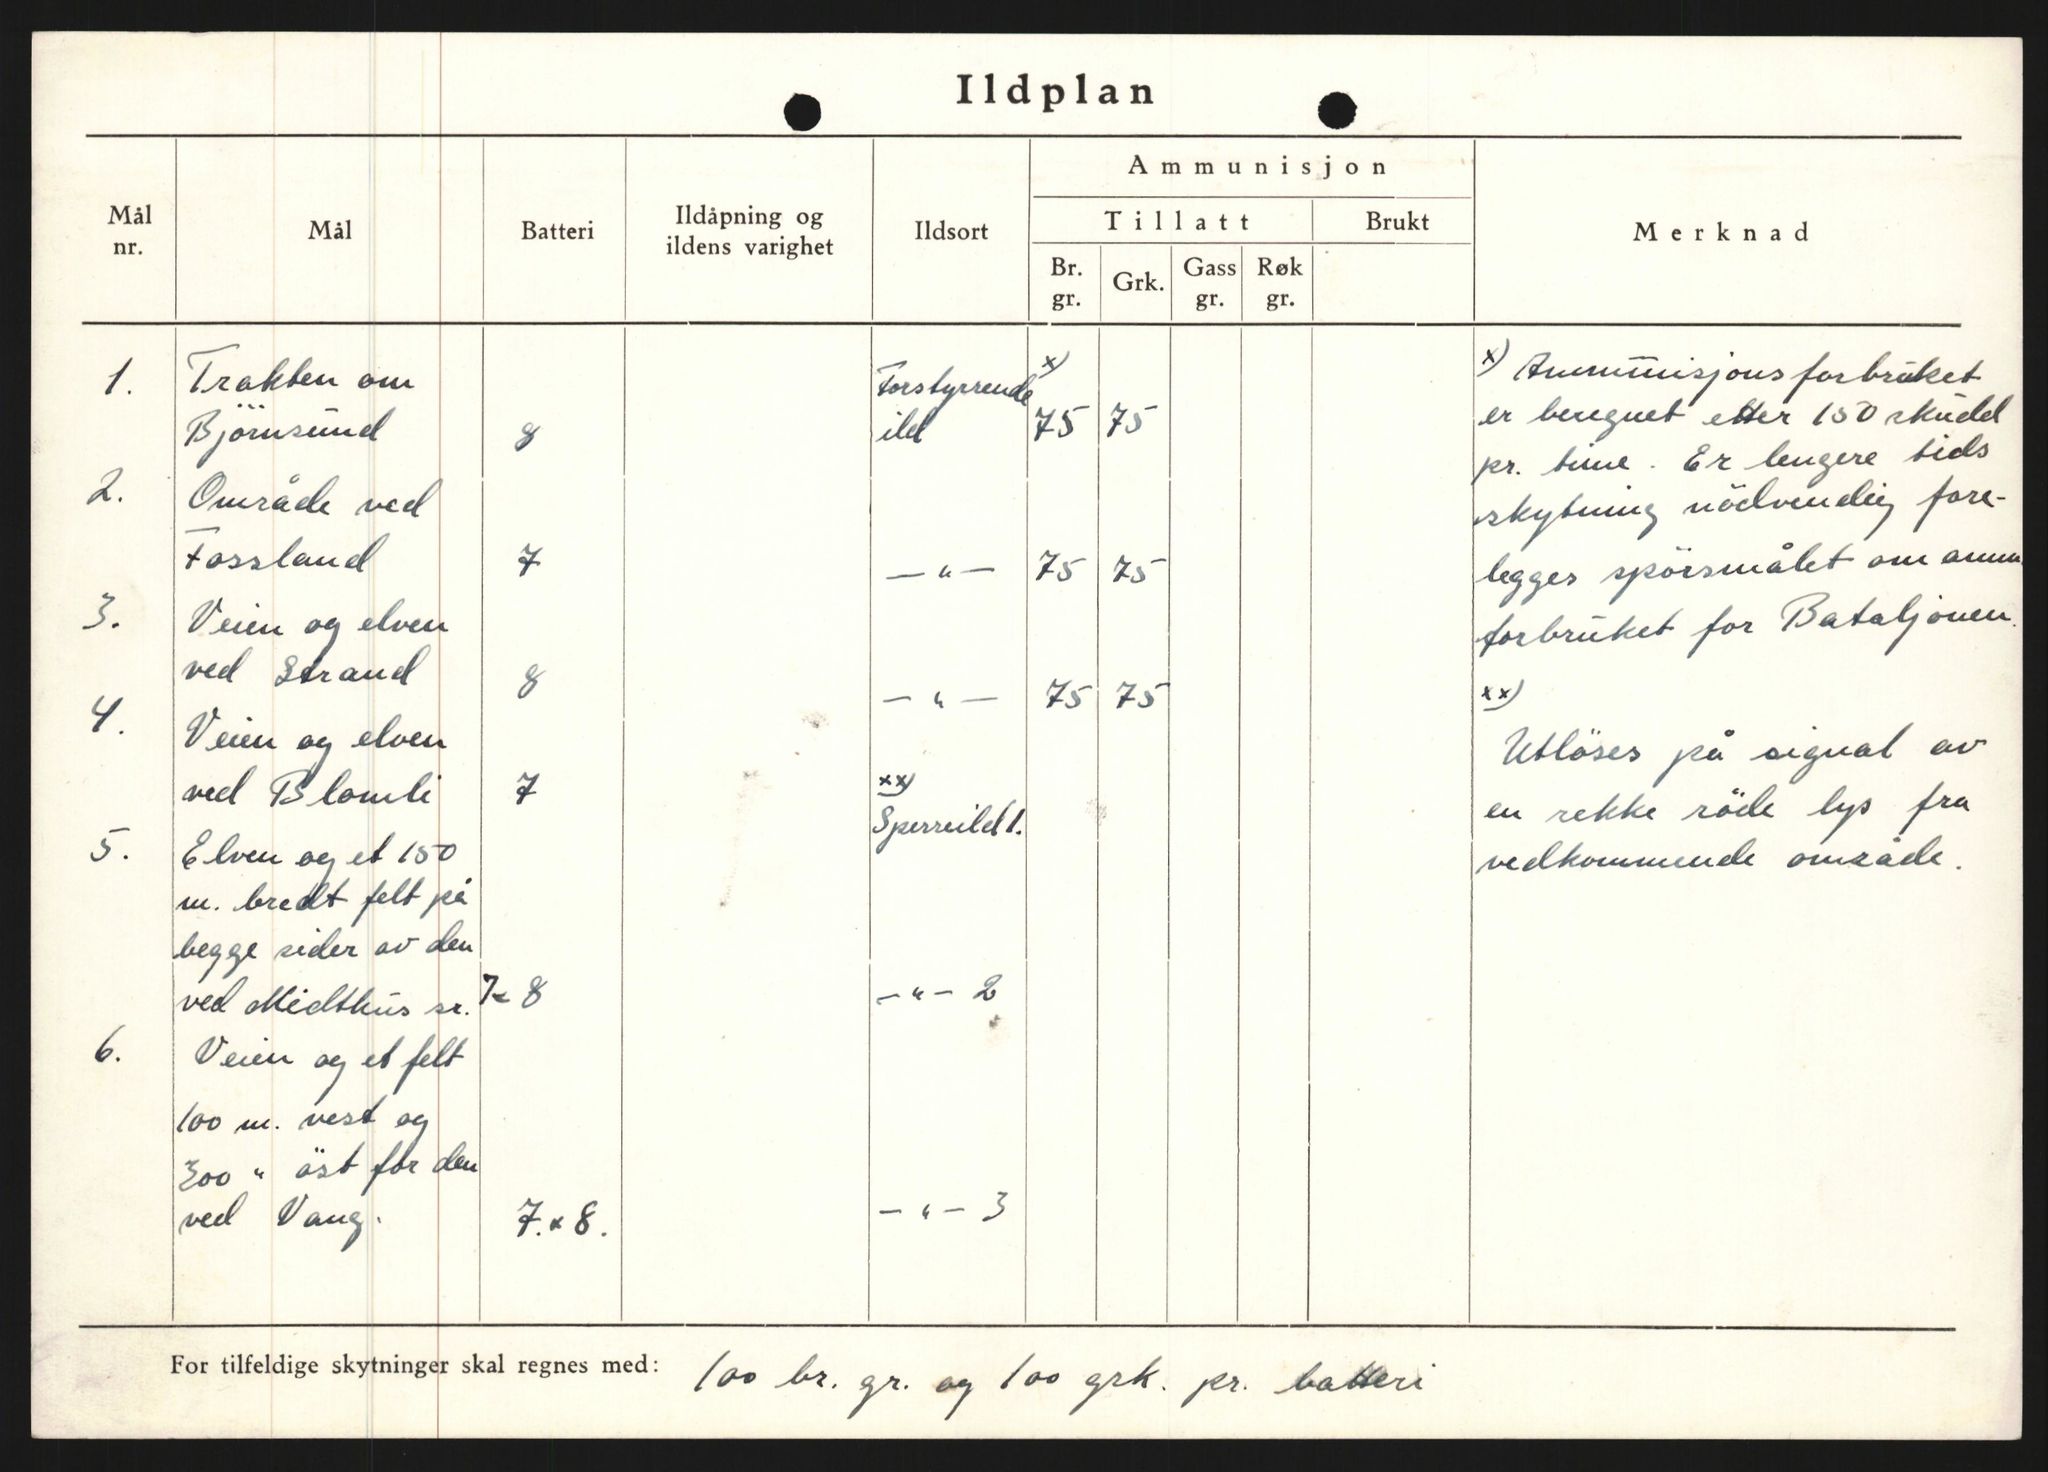 Ildplan
Mål nr.
Mål
Batteri
Ildåpning og ildens varighet
Ildsort
Ammunisjon
Tillatt
Brukt
Br. gr.
Grk.
Gass gr.
Røk gr.
Merknad
1. Trakten om
Björnsund 8 Forstyrrende ild x) 75 75
2. Område ved
Fossland 7 — " — 75 75
3. Veien og elven
ved Strand 8 — " — 75 75
4. Veien og elven
ved Blomli 7 xx) Sperreild 1.
5. Elven og et 150
m. bredt felt på
begge sider av den
ved Midthus sr. 7 & 8 — " — 2
6. Veien og et felt
100 m. vest og
300 " öst for den
ved Vang. 7. & 8. — " — 3
x) Ammunisjonsforbruket
er beregnet etter 150 skudd
pr. time. Er lengere tids
skytning nödvendig fore-
legges spörsmålet om amm.
forbruket for Bataljonen.
xx)
Utlöses på signal av
en rekke röde lys fra
vedkommende område.
For tilfeldige skytninger skal regnes med: 100 br. gr. og 100 grk. pr. batteri